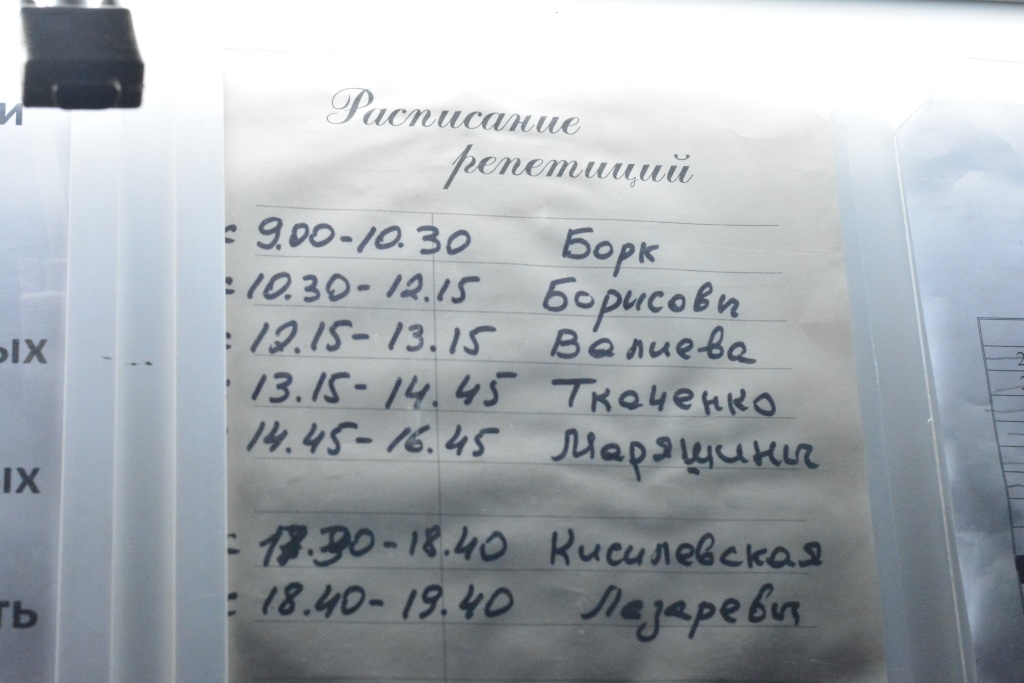 Расписание
репетиций
9.00-10.30 Борк
10.30-12.15 Борисовы
12.15-13.15 Валиева
13.15-14.45 Ткаченко
14.45-16.45 Марящины
-18.40 Кисилевская
18.40-19.40 Лазаревы
и
ых
ых
ть